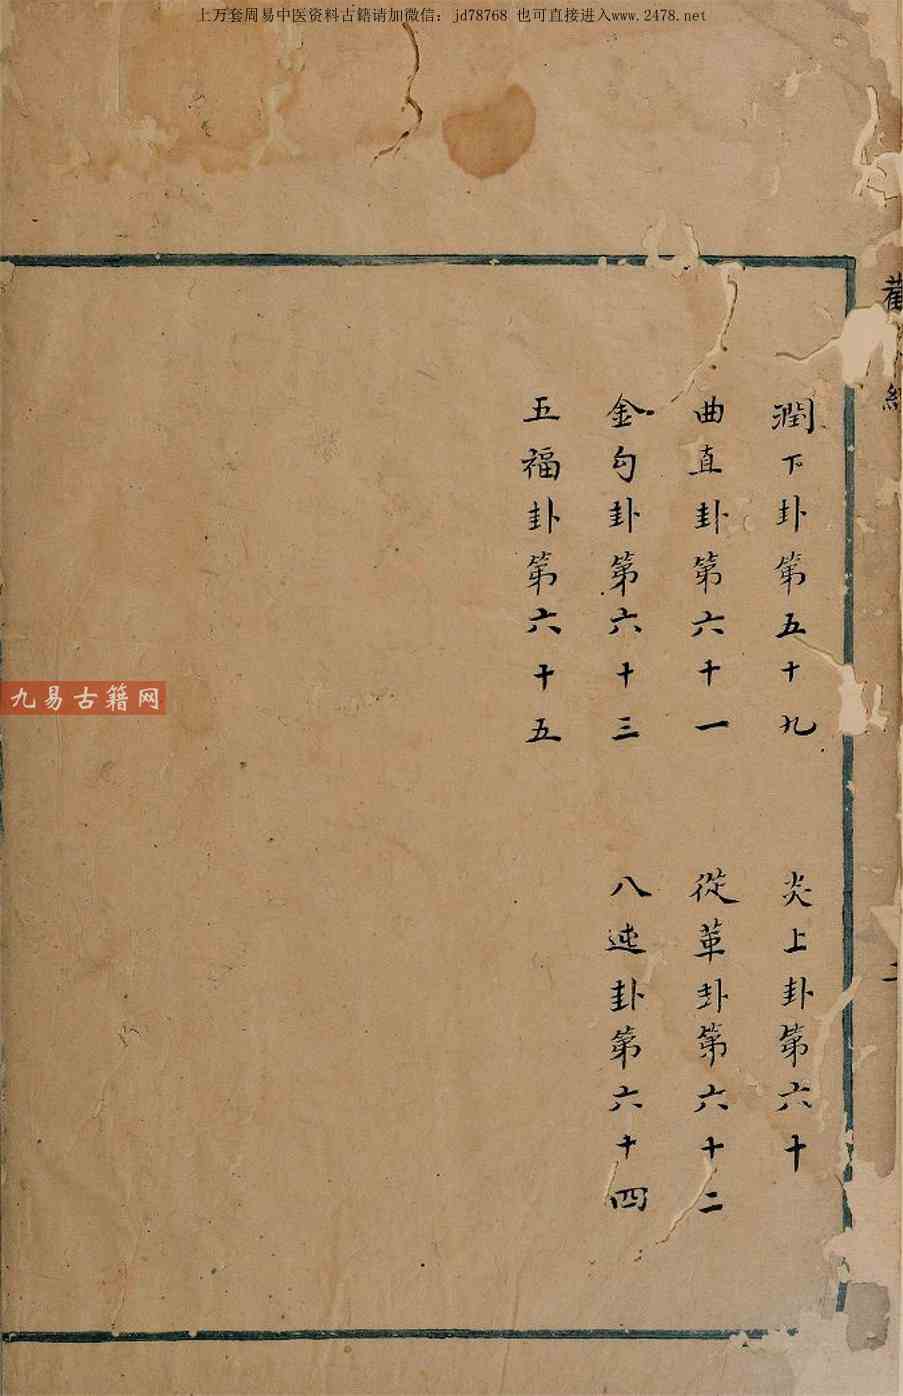 上万套周易中医资料古籍请加微信: jd78768 也可直接进入www.2478.net
潤下卦第五十九
炎上卦第六十
曲直卦第六十一
從革卦第六十二
金勾卦第六十三
八迍卦第六十四
五福卦第六十五
九易古籍网